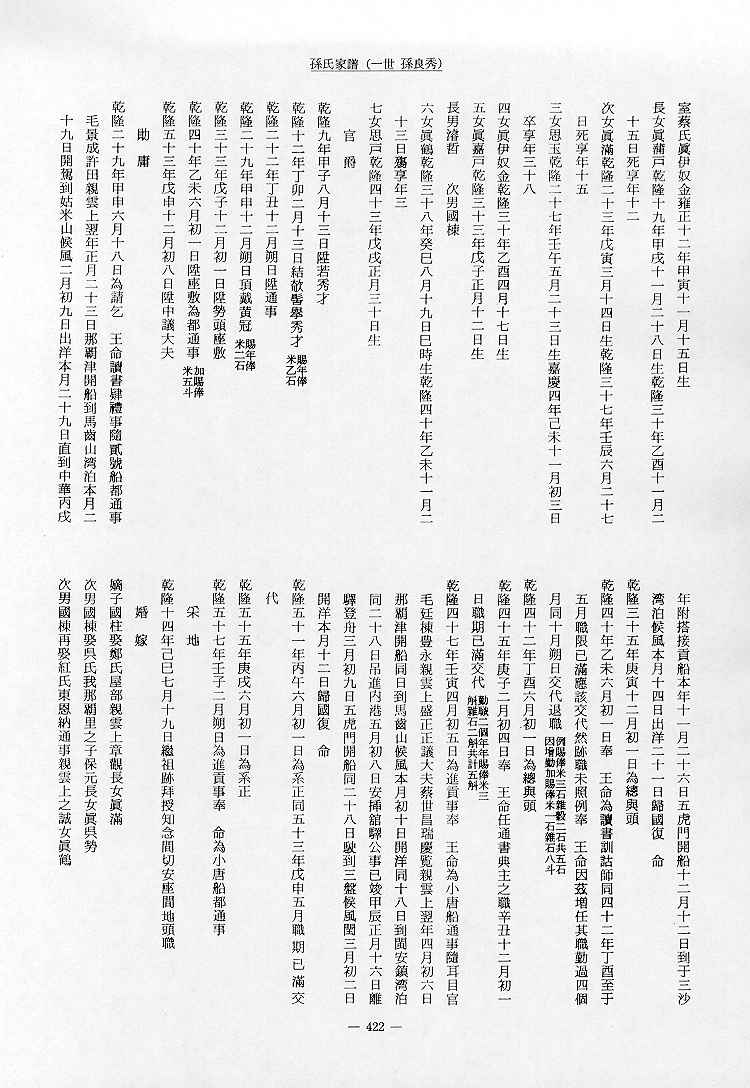 孫氏家譜（一世　孫良秀）
室蔡氏眞伊奴金雍正十二年甲寅十一月十五日生
長女眞蒲戸乾隆十九年甲戌十一月二十八日生乾隆三十年乙酉十一月二
十五日死享年十二
次女眞滿乾隆二十三年戊寅三月十四日生乾隆三十七年壬辰六月二十七
日死享年十五
三女思玉乾隆二十七年壬午五月二十三日生嘉慶四年己未十一月初三日
卒享年三十八
四女眞伊奴金乾隆三十年乙酉四月十七日生
五女眞嘉戸乾隆三十三年戊子正月十二日生
六女眞鶴乾隆三十八年癸巳八月十九日巳時生乾隆四十年乙未十一月二
十三日殤享年三
長男濬哲　次男國棟
七女思戸乾隆四十三年戊戌正月三十日生
官　爵
乾隆九年甲子八月十三日陞若秀才
乾隆十二年丁卯二月十三日結敧髻擧秀才 賜年俸米乙石
乾隆二十二年丁丑十二月朔日陞通事
乾隆二十九年甲申十二月朔日頂戴黄冠 賜年俸米二石
乾隆三十三年戊子十二月初一日陞勢頭座敷
乾隆四十年乙未六月初一日陞座敷為都通事 加賜俸米五斗
乾隆五十三年戊申十二月初八日陞中議大夫
勛　庸
乾隆二十九年甲申六月十八日為請乞　王命讀書肄禮事隨貳號船都通事
毛景成許田親雲上翌年正月二十三日那覇津開船到馬齒山湾泊本月二
十九日開駕到姑米山候風二月初九日出洋本月二十九日直到中華丙戌
年附搭接貢船本年十一月二十六日五虎門開船十二月十二日到于三沙
湾泊候風本月十四日出洋二十一日歸國復　命
乾隆三十五年庚寅十二月初一日為總與頭
乾隆四十年乙未六月初一日奉　王命為讀書訓詁師同四十二年丁酉至于
五月職限已滿應該交代然跡職未照例奉　王命因茲増任其職勤過四個
月同十月朔日交代退職 例賜俸米三石雜穀二石共五石因増勤加賜俸米一石雜石八斗
乾隆四十二年丁酉六月初一日為總與頭
乾隆四十五年庚子二月初四日奉　王命任通書典主之職辛丑十二月初一
日職期已滿交代 勤職二個年年賜俸米三斛雜石二斛共計五斛
乾隆四十七年壬寅四月初五日為進貢事奉　王命為小唐船通事隨耳目官
毛廷棟豊永親雲上盛正正議大夫蔡世昌瑞慶覧親雲上翌年四月初六日
那覇津開船同日到馬齒山候風本月初十日開洋同十八日到閩安鎮湾泊
同二十八日吊進内港五月初八日安揷舘驛公事已竣甲辰正月十六日離
驛登舟三月初九日五虎門開船同二十八日駛到三盤候風閏三月初二日
開洋本月十二日歸國復　命
乾隆五十一年丙午六月初一日為系正同五十三年戊申五月職期已滿交
代
乾隆五十五年庚戌六月初一日為系正
乾隆五十七年壬子二月朔日為進貢事奉　命為小唐船都通事
采　地
乾隆十四年己巳七月十九日繼祖跡拜授知念間切安座間地頭職
婚　嫁
嫡子國柱娶鄭氏屋部親雲上章觀長女眞滿
次男國棟娶呉氏我那覇里之子保元長女眞呉勢
次男國棟再娶紅氏東恩納通事親雲上之誠女眞鶴
— 422 —